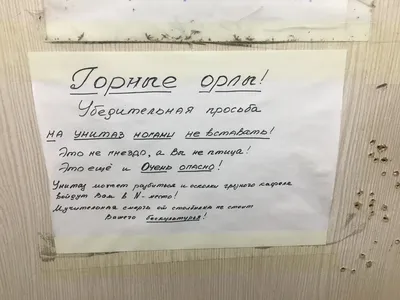 Горные орлы!
Убедительная просьба
на унитаз ногами не вставать!
Это не гнездо, а Вы не птица!
Это ещё и Очень опасно!
Унитаз может разбиться и осколки грузного кафеля
войдут Вам в N-место!
Мучительная смерть от столбняка не стоит
Вашего бескультурия!